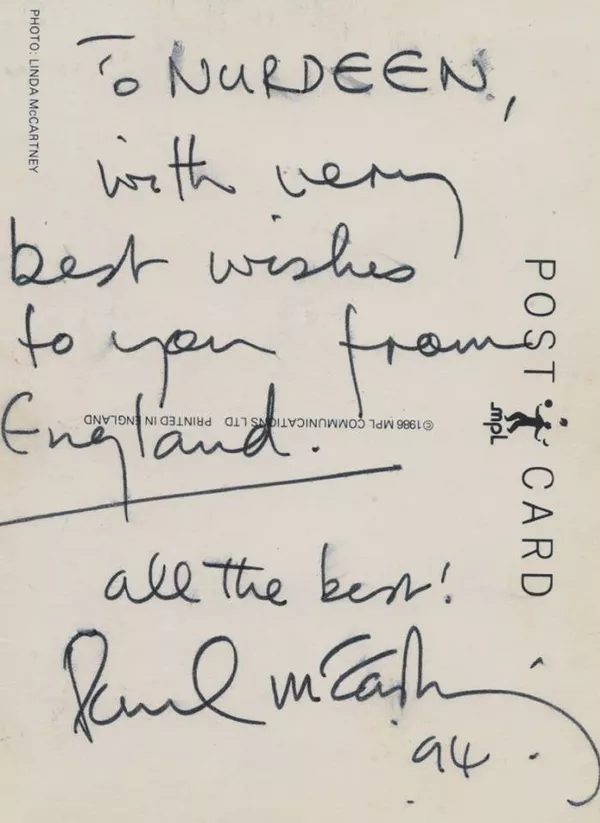 PHOTO: LINDA McCARTNEY
To NURDEEN,
with very
best wishes
to you from
England.
© 1986 MPL COMMUNICATIONS LTD PRINTED IN ENGLAND
POST CARD
mpl
all the best!
Paul McCartney
94